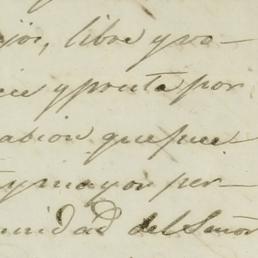 jor, libre y va-
cie y pronta por
abion que fue
y mayor per-
unidad del Señor